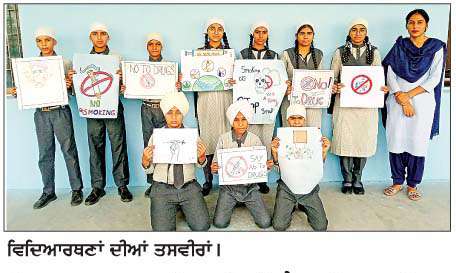 NO SMOKING
NO TO DRUGS
SMOKING
STOP
NO!
TO
DRUGS
SAY
NO TO
DRUGS
ਵਿਦਿਆਰਥਣਾਂ ਦੀਆਂ ਤਸਵੀਰਾਂ।